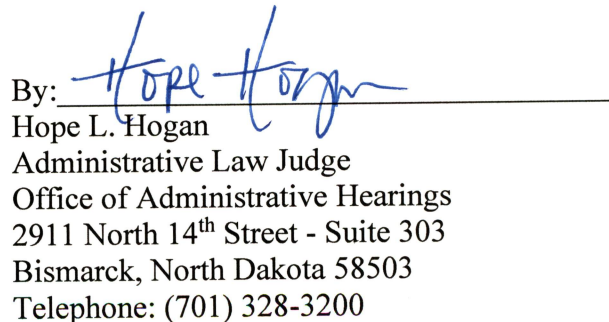 By: Hope Hogan
Hope L. Hogan
Administrative Law Judge
Office of Administrative Hearings
2911 North 14th Street - Suite 303
Bismarck, North Dakota 58503
Telephone: (701) 328-3200